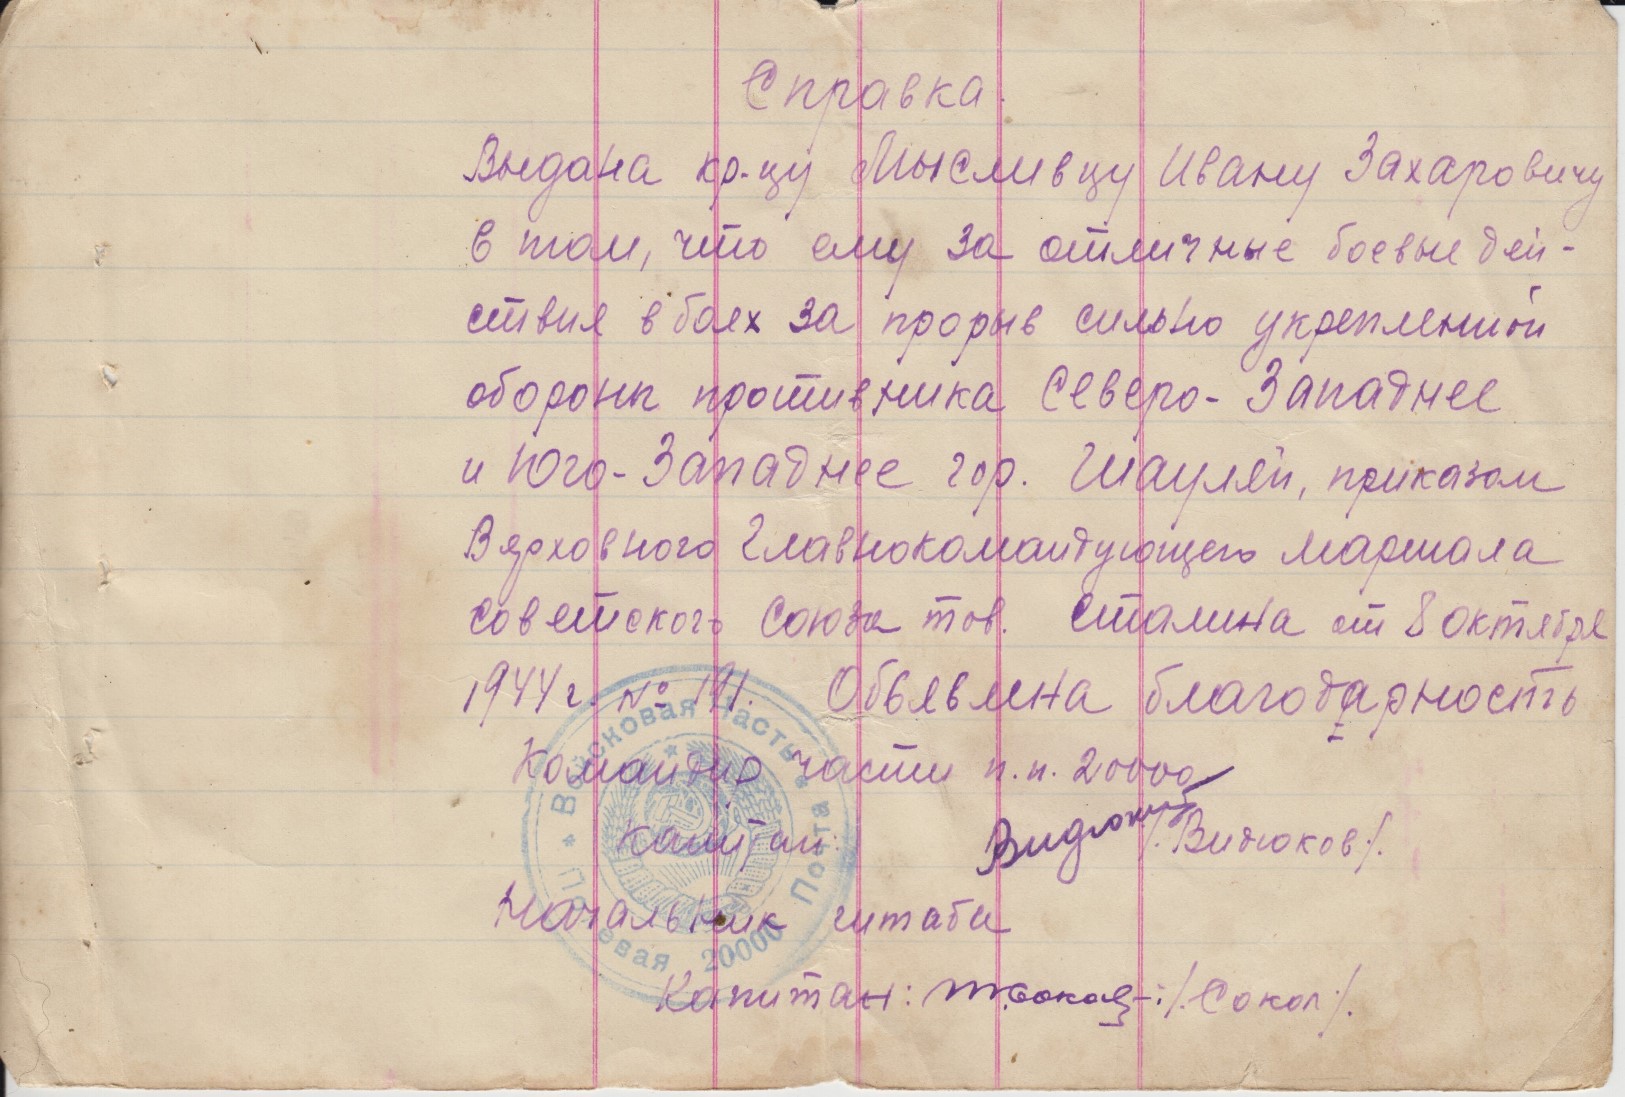 Справка.
Выдана кр-цу Мысливцу Ивану Захаровичу
в том, что ему за отличные боевые дей-
ствия в боях за прорыв сильно укрепленной
обороны противника Северо-Западнее
и Юго-Западнее гор. Шауляй, приказом
Верховного Главнокомандующего маршала
советского союза тов. Сталина от 8 октября
1944 г. № 191. Обьявлена благодарность
Командир части п.п. 20000
Капитан: Видюков /.Видюков/.
Начальник штаба
Капитан: Сокол /.Сокол/.
Войсковая Часть
Полевая Почта
20000